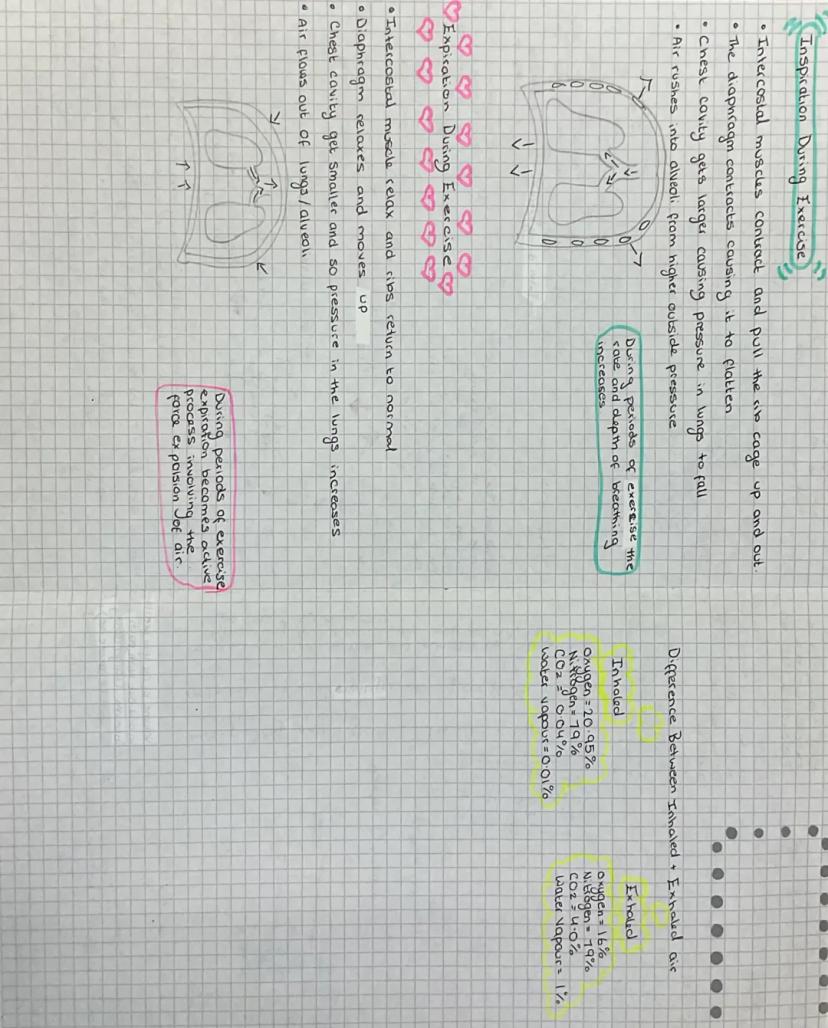 Inspiration During Exercise
• Intercostal muscles contract and pull the rib cage up and out.
• The diaphragm contracts causing it to flatten
• Chest cavity gets larger causing pressure in lungs to fall
• Air rushes into alveoli from higher outside pressure
During periods of exercise the
rate and depth of breathing
increases
Expiration During Exercise
• Intercostal muscle relax and ribs return to normal
• Diaphragm relaxes and moves up
• Chest cavity get smaller and so pressure in the lungs increases
• Air flows out of lungs/alveoli
During periods of exercise
expiration becomes active
process involving the
force expolsion of air.
Difference Between Inhaled + Exhaled air
Inhaled
oxygen = 20.95%
Nitrogen = 79%
CO2 = 0.04%
Water vapour = 0.01%
Exhaled
oxygen = 16%
Nitrogen = 79%
CO2 = 4.0%
Water vapour = 1%